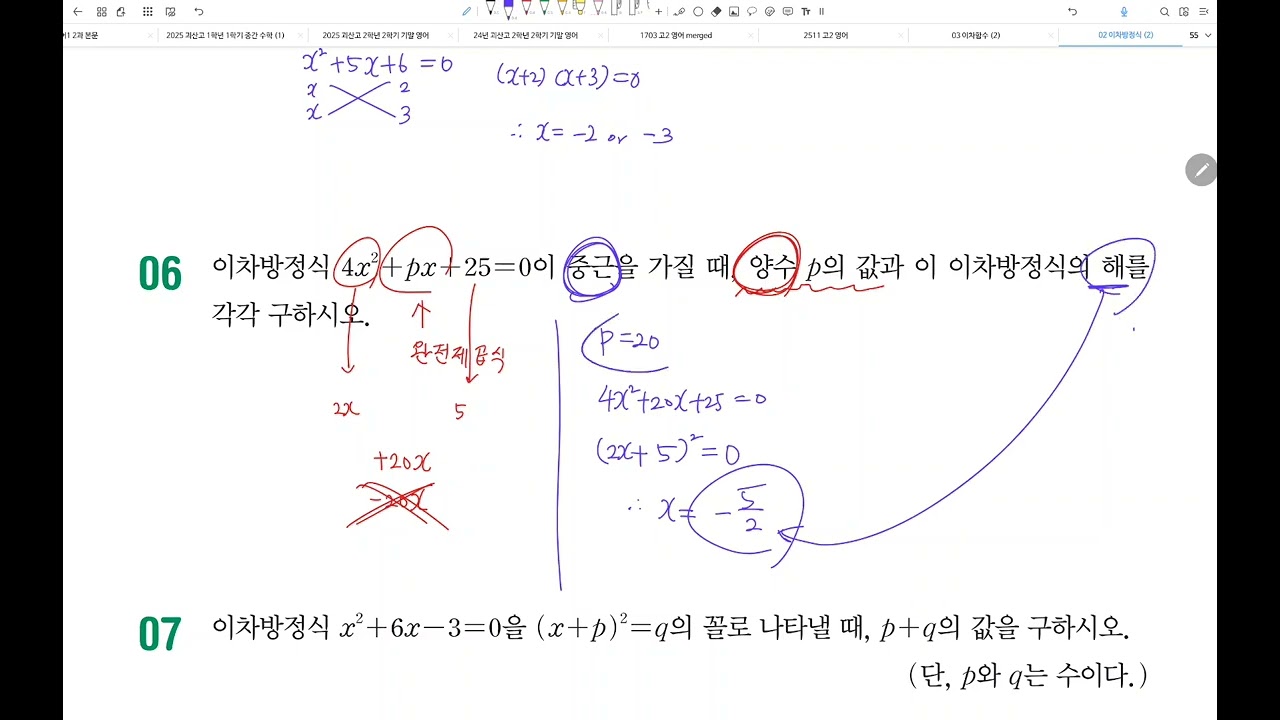 2과 본문
2025 괴산고 1학년 1학기 중간 수학 (1)
2025 괴산고 2학년 2학기 기말 영어
24년 괴산고 2학년 2학기 기말 영어
1703 고2 영어 merged
2511 고2 영어
03 이차함수 (2)
02 이차방정식 (2)
55
x²+5x+6=0
x 2
x 3
(x+2)(x+3)=0
∴ x=-2 or -3
06 이차방정식 4x²+px+25=0이 중근을 가질 때, 양수 p의 값과 이 이차방정식의 해를
각각 구하시오.
완전제곱식
2x 5
+20x
-20x
p=20
4x²+20x+25=0
(2x+5)²=0
∴ x=-5/2
07 이차방정식 x²+6x-3=0을 (x+p)²=q의 꼴로 나타낼 때, p+q의 값을 구하시오.
(단, p와 q는 수이다.)